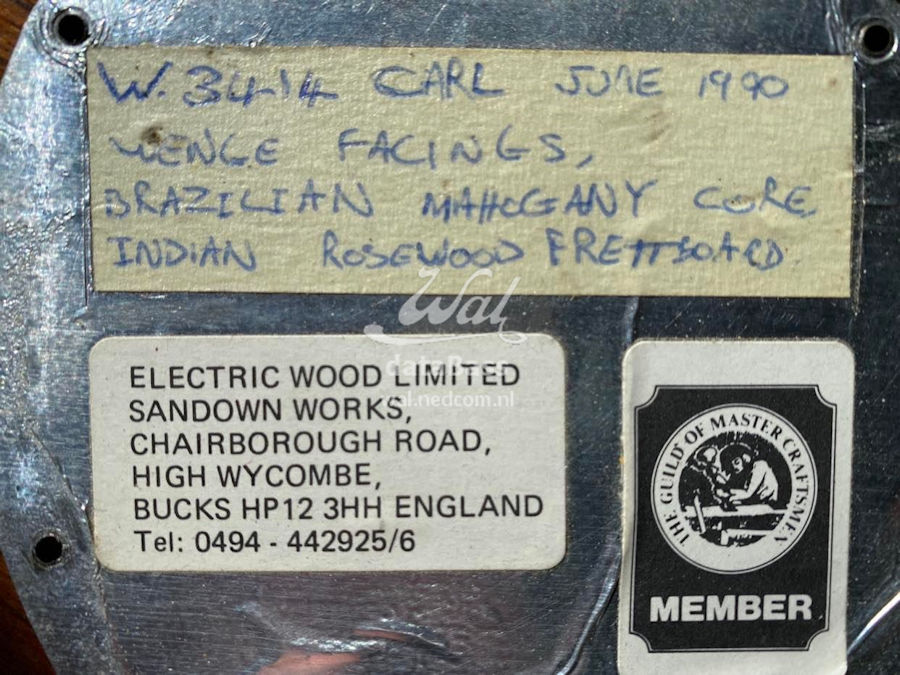 W.3414 CARL JUNE 1990
WENGE FACINGS,
BRAZILIAN MAHOGANY CORE,
INDIAN ROSEWOOD FRETTBOARD.
Wal
dataBass
wal.nedcom.nl
ELECTRIC WOOD LIMITED
SANDOWN WORKS,
CHAIRBOROUGH ROAD,
HIGH WYCOMBE,
BUCKS HP12 3HH ENGLAND
Tel: 0494 - 442925/6
THE GUILD OF MASTER CRAFTSMEN
MEMBER